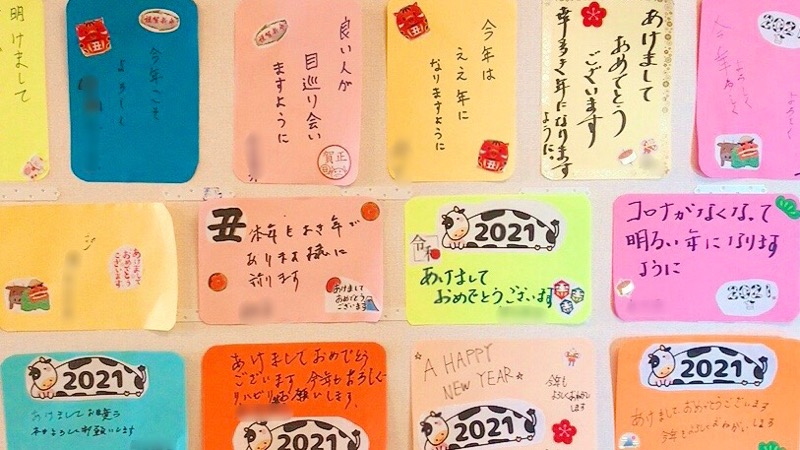 明けまして
謹賀新年
丑
今年こそ
よろしく
謹賀新年
良い人が
目巡り会い
ますように
賀正
丑
今年は
ええ年に
なりますように
丑
あけまして
おめでとう
ございます
幸多き年になります
ように。
2021
あけまして
おめでとう
ございます
丑
本年もよき年が
あります様に
祈ります
あけまして
おめでとう
ございます
2021
令和
あけまして
おめでとうございます
コロナがなくなって
明るい年になります
ように
2021
2021
あけましてお目出とう
本年よろしくお願いします
あけましておめでとう
ございます 今年もよろしく
リハビリお願いします。
2021
A HAPPY
NEW YEAR
今年も
よろしくおねがい
します
2021
2021
あけましておめでとうございます
今年もよろしくおねがいします